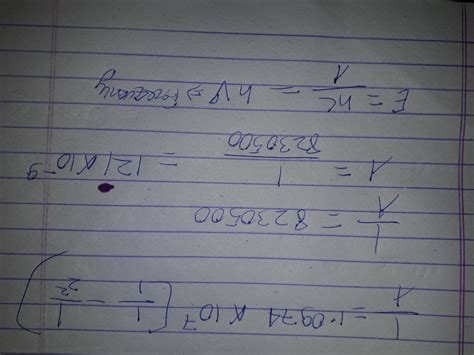 1/λ = 1.0974 X 10⁷ [1/1 - 1/2²]
1/λ = 8230500
λ = 1/8230500 = 121 X10⁻⁹
E = hc/λ = hν → Frequency